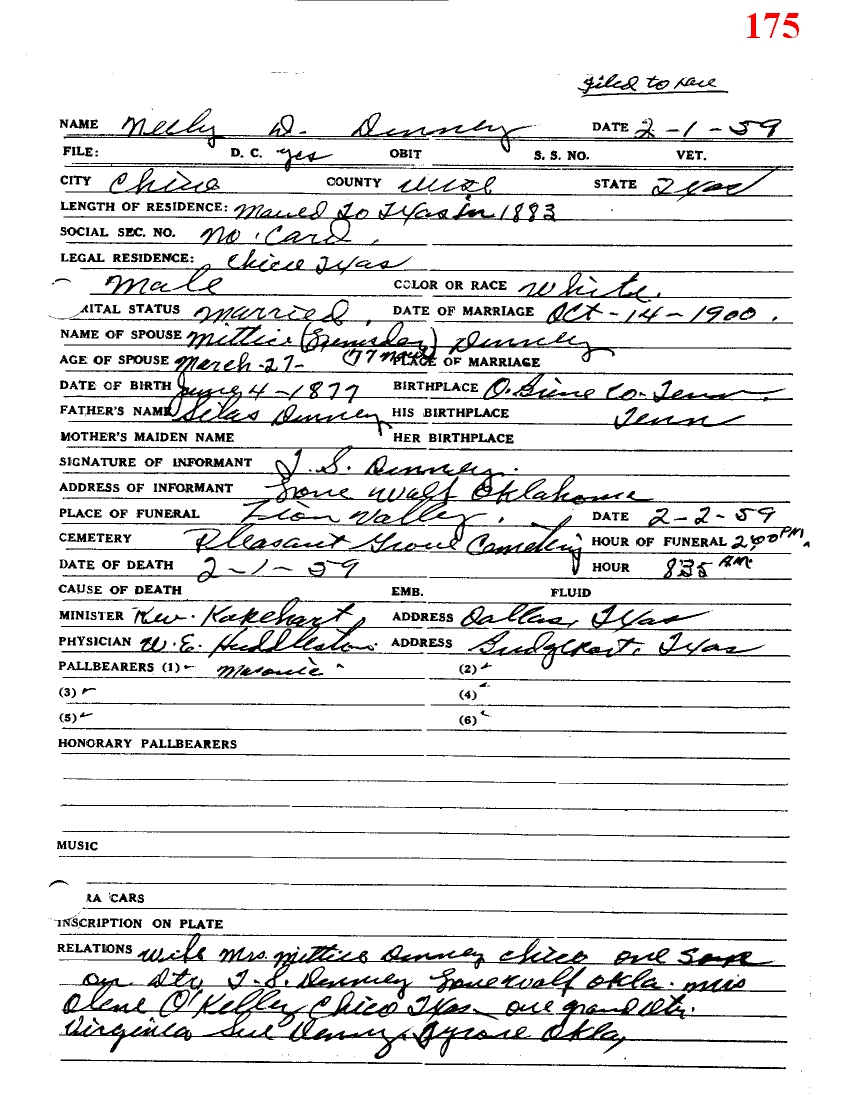 175
filed to
NAME D. Denney DATE 2-1-59
FILE: D. C. yes OBIT S. S. NO. VET.
CITY Chico COUNTY Wise STATE Texas
LENGTH OF RESIDENCE: Moved To Texas in 1883
SOCIAL SEC. NO. No Card.
LEGAL RESIDENCE: Chico Texas
Male COLOR OR RACE White.
RITAL STATUS Married, DATE OF MARRIAGE Oct-14-1900.
NAME OF SPOUSE Mittice Denney
AGE OF SPOUSE March-27- (77 PLACE OF MARRIAGE
DATE OF BIRTH June 4-1877 BIRTHPLACE Co. Tenn.
FATHER'S NAME Silas Denney HIS BIRTHPLACE Tenn
MOTHER'S MAIDEN NAME HER BIRTHPLACE
SIGNATURE OF INFORMANT J. S. Denney.
ADDRESS OF INFORMANT Lone Wolf Oklahoma
PLACE OF FUNERAL Valley. DATE 2-2-59
CEMETERY Pleasant Grove Cemetery HOUR OF FUNERAL 2:00 PM
DATE OF DEATH 2-1-59 HOUR 835 AM.
CAUSE OF DEATH EMB. FLUID
MINISTER Rev. ADDRESS Dallas, Texas
PHYSICIAN W. E. Huddleston. ADDRESS Bridgeport, Texas
PALLBEARERS (1) Masonic (2)
(3) (4)
(5) (6)
HONORARY PALLBEARERS
MUSIC
RA CARS
INSCRIPTION ON PLATE
RELATIONS wife Mrs. Mittice Denney Chico one son
on Dtr J. S. Denney Lone Wolf Okla. Mrs
Olene O'Kelley Chico Texas - one grand Dtr.
Virginia Sue Denny, Okla,